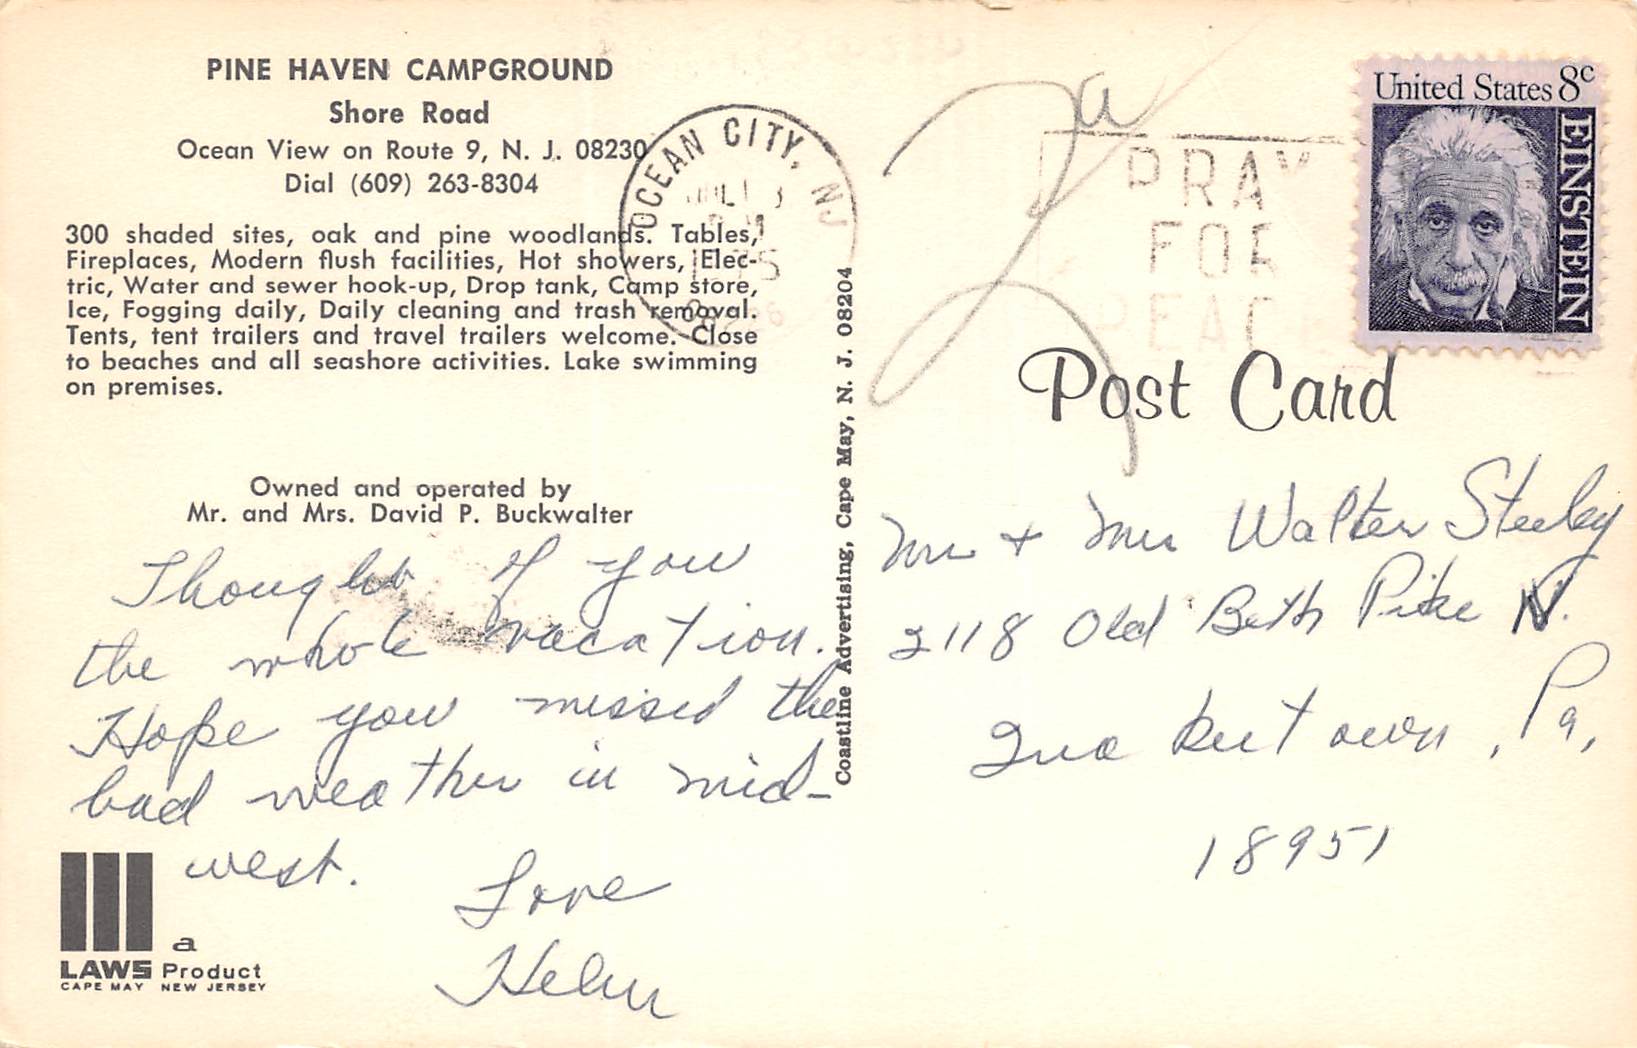 PINE HAVEN CAMPGROUND
Shore Road
Ocean View on Route 9, N. J. 08230
Dial (609) 263-8304
300 shaded sites, oak and pine woodlands. Tables,
Fireplaces, Modern flush facilities, Hot showers, Elec-
tric, Water and sewer hook-up, Drop tank, Camp store,
Ice, Fogging daily, Daily cleaning and trash removal.
Tents, tent trailers and travel trailers welcome. Close
to beaches and all seashore activities. Lake swimming
on premises.
Owned and operated by
Mr. and Mrs. David P. Buckwalter
Thought of you
the whole vacation.
Hope you missed the
bad weather in mid-
west.
Love
Helen
a
LAWS Product
CAPE MAY NEW JERSEY
Coastline Advertising, Cape May, N. J. 08204
OCEAN CITY, NJ
PRAY
FOR
PEACE
United States 8c
EINSTEIN
Post Card
Mr + Mrs Walter Steeley
2118 Old Beth Pike N.
Quakertown, Pa,
18951